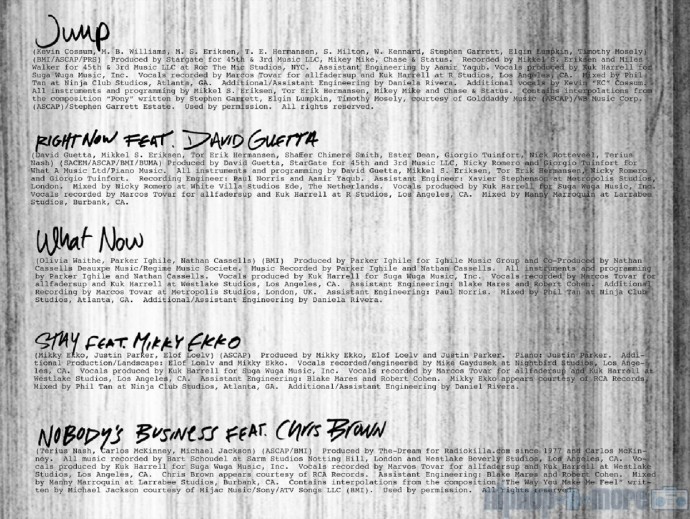 Jump
(Kevin Cossum, M. B. Williams, M. S. Eriksen, T. E. Hermansen, S. Milton, W. Kennard, Stephen Garrett, Elgin Lumpkin, Timothy Mosely)
(BMI/ASCAP/PRS) Produced by Stargate for 45th & 3rd Music LLC, Mikey Mike, Chase & Status. Recorded by Mikkel S. Eriksen and Miles
Walker for 45th & 3rd Music LLC at Roc The Mic Studios, NYC. Assistant Engineering by Aamir Yaqub. Vocals produced by Kuk Harrell for
Suga Wuga Music, Inc. Vocals recorded by Marcos Tovar for allfadersup and Kuk Harrell at R Studios, Los Angeles, CA. Mixed by Phil
Tan at Ninja Club Studios, Atlanta, GA. Additional/Assistant Engineering by Daniela Rivera. Additional Vocals by Kevin "KC" Cossum.
All instruments and programming by Mikkel S. Eriksen, Tor Erik Hermansen, Mikey Mike and Chase & Status. Contains interpolations from
the composition "Pony" written by Stephen Garrett, Elgin Lumpkin, Timothy Mosely, courtesy of Golddaddy Music (ASCAP)/WB Music Corp.
(ASCAP)/Stephen Garrett Estate. Used by permission. All rights reserved.
RIGHT NOW FEAT. DAVID GUETTA
(David Guetta, Mikkel S. Eriksen, Tor Erik Hermansen, Shaffer Chimere Smith, Ester Dean, Giorgio Tuinfort, Nick Rotteveel, Terius
Nash) (SACEM/ASCAP/BMI/BUMA) Produced by David Guetta, StarGate for 45th and 3rd Music LLC, Nicky Romero and Giorgio Tuinfort for
What A Music Ltd/Piano Music. All instruments and programming by David Guetta, Mikkel S. Eriksen, Tor Erik Hermansen, Nicky Romero
and Giorgio Tuinfort. Recording Engineer: Paul Norris and Aamir Yaqub. Assistant Engineer: Xavier Stephenson at Metropolis Studios,
London. Mixed by Nicky Romero at White Villa Studios Ede, The Netherlands. Vocals produced by Kuk Harrell for Suga Wuga Music, Inc.
Vocals recorded by Marcos Tovar for allfadersup and Kuk Harrell at R Studios, Los Angeles, CA. Mixed by Manny Marroquin at Larrabee
Studios, Burbank, CA.
What Now
(Olivia Waithe, Parker Ighile, Nathan Cassells) (BMI) Produced by Parker Ighile for Ighile Music Group and Co-Produced by Nathan
Cassells Deauxpe Music/Regime Music Society. Music Recorded by Parker Ighile and Nathan Cassells. All instruments and programming
by Parker Ighile and Nathan Cassells. Vocals produced by Kuk Harrell for Suga Wuga Music, Inc. Vocals recorded by Marcos Tovar for
allfadersup and Kuk Harrell at Westlake Studios, Los Angeles, CA. Assistant Engineering: Blake Mares and Robert Cohen. Additional
Recording by Marcos Tovar at Metropolis Studios, London, UK. Assistant Engineering: Paul Norris. Mixed by Phil Tan at Ninja Club
Studios, Atlanta, GA. Additional/Assistant Engineering by Daniela Rivera.
STAY FEAT. MIKKY EKKO
(Mikky Ekko, Justin Parker, Elof Loelv) (ASCAP) Produced by Mikky Ekko, Elof Loelv and Justin Parker. Piano: Justin Parker. Addi-
tional Production/Landscape: Elof Loelv and Mikky Ekko. Vocals recorded/engineered by Mike Gaydusek at Nightbird Studios, Los Ange-
les, CA. Vocals produced by Kuk Harrell for Suga Wuga Music, Inc. Vocals recorded by Marcos Tovar for allfadersup and Kuk Harrell at
Westlake Studios, Los Angeles, CA. Assistant Engineering: Blake Mares and Robert Cohen. Mikky Ekko appears courtesy of RCA Records.
Mixed by Phil Tan at Ninja Club Studios, Atlanta, GA. Additional/Assistant Engineering by Daniel Rivera.
NOBODY'S BUSINESS FEAT. CHRIS BROWN
(Terius Nash, Carlos McKinney, Michael Jackson) (ASCAP/BMI) Produced by The-Dream for Radiokilla.com since 1977 and Carlos McKin-
ney. All music recorded by Bart Schoudel at Sarm Studios Notting Hill, London and Westlake Beverly Studios, Los Angeles, CA. Vo-
cals produced by Kuk Harrell for Suga Wuga Music, Inc. Vocals recorded by Marvos Tovar for allfadersup and Kuk Harrell at Westlake
Studios, Los Angeles, CA. Chris Brown appears courtesy of RCA Records. Assistant Engineering: Blake Mares and Robert Cohen. Mixed
by Manny Marroquin at Larrabee Studios, Burbank, CA. Contains interpolations from the composition "The Way You Make Me Feel" writ-
ten by Michael Jackson courtesy of Mijac Music/Sony/ATV Songs LLC (BMI). Used by permission. All rights reserved.